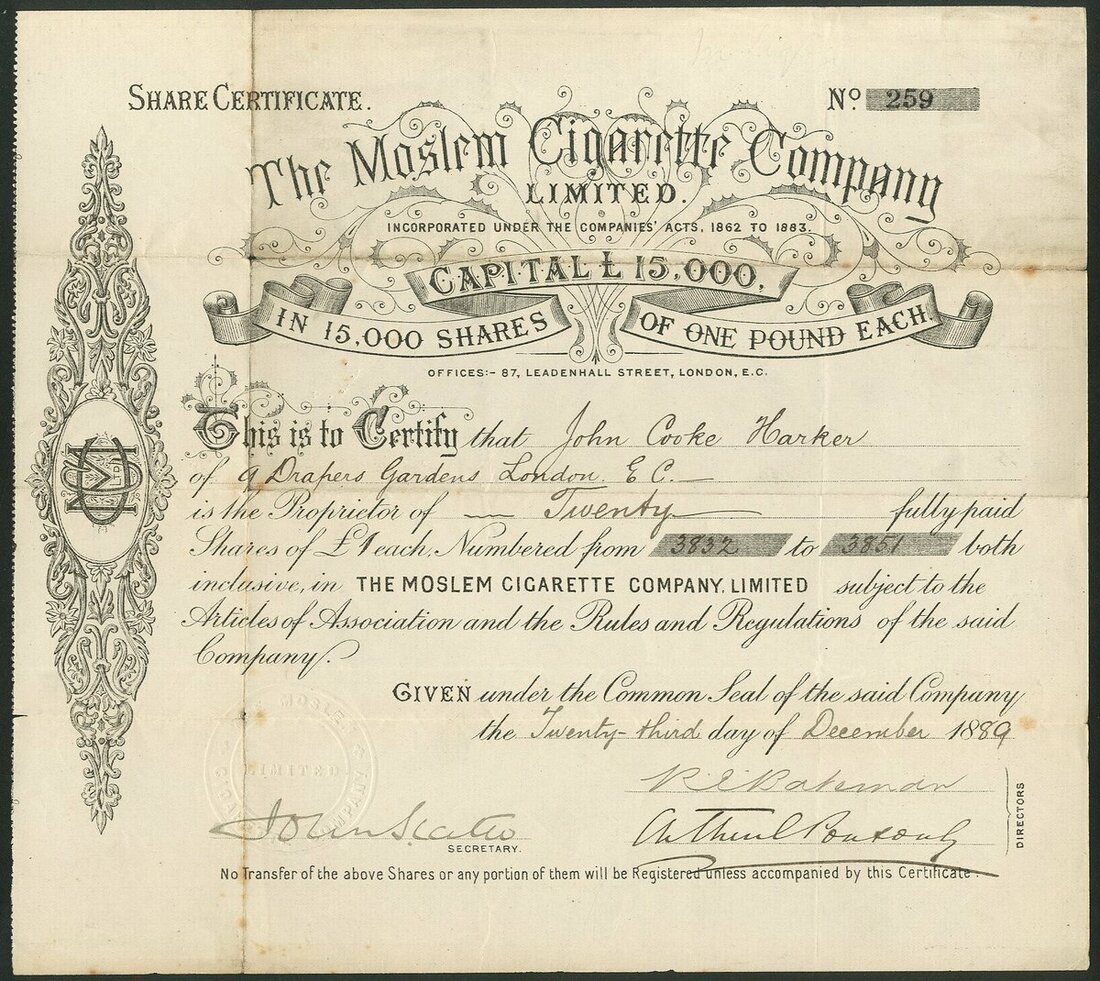 SHARE CERTIFICATE.
No. 259
The Moslem Cigarette Company
LIMITED.
INCORPORATED UNDER THE COMPANIES' ACTS, 1862 TO 1883.
CAPITAL £ 15,000,
IN 15,000 SHARES OF ONE POUND EACH.
OFFICES:- 87, LEADENHALL STREET, LONDON, E.C.
This is to Certify that John Cooke Harker
of 9 Drapers Gardens London. E C.
is the Proprietor of Twenty fully paid
Shares of £1 each, Numbered from 3832 to 3851 both
inclusive, in THE MOSLEM CIGARETTE COMPANY, LIMITED subject to the
Articles of Association and the Rules and Regulations of the said
Company.
GIVEN under the Common Seal of the said Company
the Twenty-third day of December 1889
MOSLEM
LIMITED
Bateman
John
SECRETARY.
Arthur Ponsonby
DIRECTORS
No Transfer of the above Shares or any portion of them will be Registered unless accompanied by this Certificate.